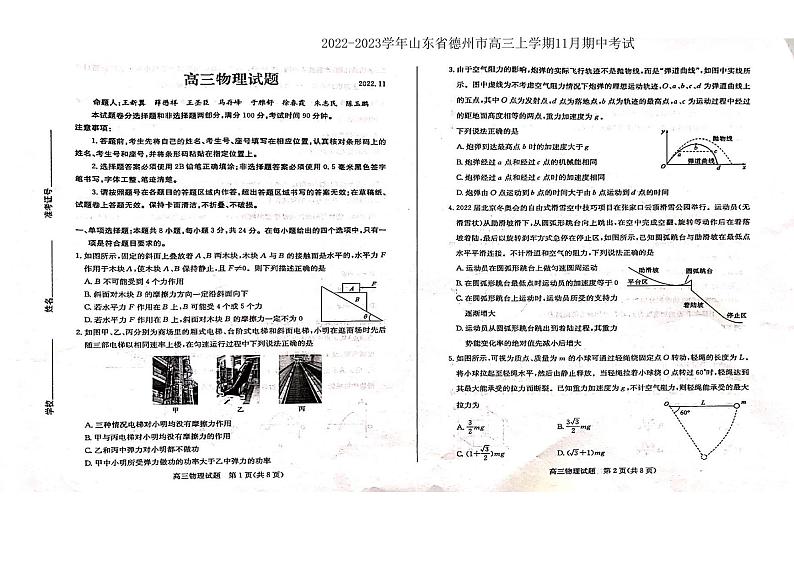 2022-2023学年山东省德州市高三上学期11月期中考试
高三物理试题
2022.11
本试题卷分选择题和非选择题两部分,满分100分,考试时间90分钟。
注意事项:
1.答题前,考生先将自己的姓名、考生号、座号填写在相应位置,认真核对条形码上的
姓名、考生号和座号,并将条形码粘贴在指定位置上。
2.选择题答案必须使用2B铅笔正确填涂;非选择题答案必须使用0.5毫米黑色签字
笔书写,字体工整、笔迹清楚。
3.请按照题号在各题目的答题区域内作答,超出答题区域书写的答案无效;在草稿纸、
试题卷上答题无效。保持卡面清洁,不折叠、不破损。
一、单项选择题:本题共8小题,每小题3分,共24分。在每小题给出的四个选项中,只有一
项是符合题目要求的。
1.如图所示,固定的斜面上叠放着A、B两木块,木块A与B的接触面是水平的,水平力F
作用于木块A,使木块A、B保持静止,且F≠0。则下列描述正确的是
A.B不可能受到4个力作用
B.斜面对木块B的摩擦力方向一定沿斜面向下
C.若水平力F作用在B上,B可能受4个或5个力
D.若水平力F作用在B上,斜面对木块B的摩擦力一定不为0
A
F
B
θ
2.如图甲、乙、丙分别为商场里的厢式电梯、台阶式电梯和斜面电梯,小明在逛商场时先后
随三部电梯以相同速率上楼,在匀速运行过程中下列说法正确的是
甲
乙
丙
A.三种情况电梯对小明均没有摩擦力作用
B.甲与丙电梯对小明均没有摩擦力作用
C.乙和丙中弹力对小明都不做功
D.甲中小明所受弹力做功的功率大于乙中弹力的功率
高三物理试题 第1页(共8页)
准考证号
姓名
学校
3.由于空气阻力的影响,炮弹的实际飞行轨迹不是抛物线,而是“弹道曲线”,如图中实线所
示。图中虚线为不考虑空气阻力情况下炮弹的理想运动轨迹,O、a、b、c、d为弹道曲线上
的五点,其中O点为发射点,d点为落地点,b点为轨迹的最高点,a、c为运动过程中经过
的距地面高度相等的两点,重力加速度为g。
下列说法正确的是
A.炮弹到达最高点b时的加速度等于g
B.炮弹经过a点和经过c点的机械能相同
C.炮弹经过a点和经过c点时的加速度相同
D.炮弹由O点运动到b点的时间大于由b点运动到d点的时间
y
抛物线
b
a
c
弹道曲线
O
d
x
4.2022届北京冬奥会的自由式滑雪空中技巧项目在张家口云顶滑雪公园举行。运动员(无
滑雪杖)从助滑坡滑下,从圆弧形跳台向上跳出,在空中完成空翻、旋转等动作后在着落
坡着陆,最后以旋转刹车方式急停在停止区,如图所示,已知圆弧形跳台与助滑坡在最低点
水平平滑连接。不计滑道和空气的阻力,下列说法正确的是
A.运动员在圆弧形跳台上做匀速圆周运动
B.在圆弧形跳台最低点时运动员的加速度等于0
C.在圆弧形跳台上运动时,运动员所受的支持力
逐渐增大
D.运动员从圆弧形跳台跳出到着陆过程,其重力
势能变化率的绝对值先减小后增大
助滑坡
圆弧跳台
平台区
着陆坡
停止区
5.如图所示,可视为质点、质量为m的小球可通过轻绳绕固定点O转动,轻绳的长度为L。
将小球拉起至轻绳水平,然后由静止释放。当轻绳拉着小球绕O点转过60°时,轻绳达到
其最大能承受的拉力而断裂。已知重力加速度为g,不计空气阻力,则轻绳能承受的最大
拉力为
A. 3/2 mg
B. 3√3/2 mg
C. (1+√3/2)mg
D. (√3+1)mg
O
L
m
60°
高三物理试题 第2页(共8页)